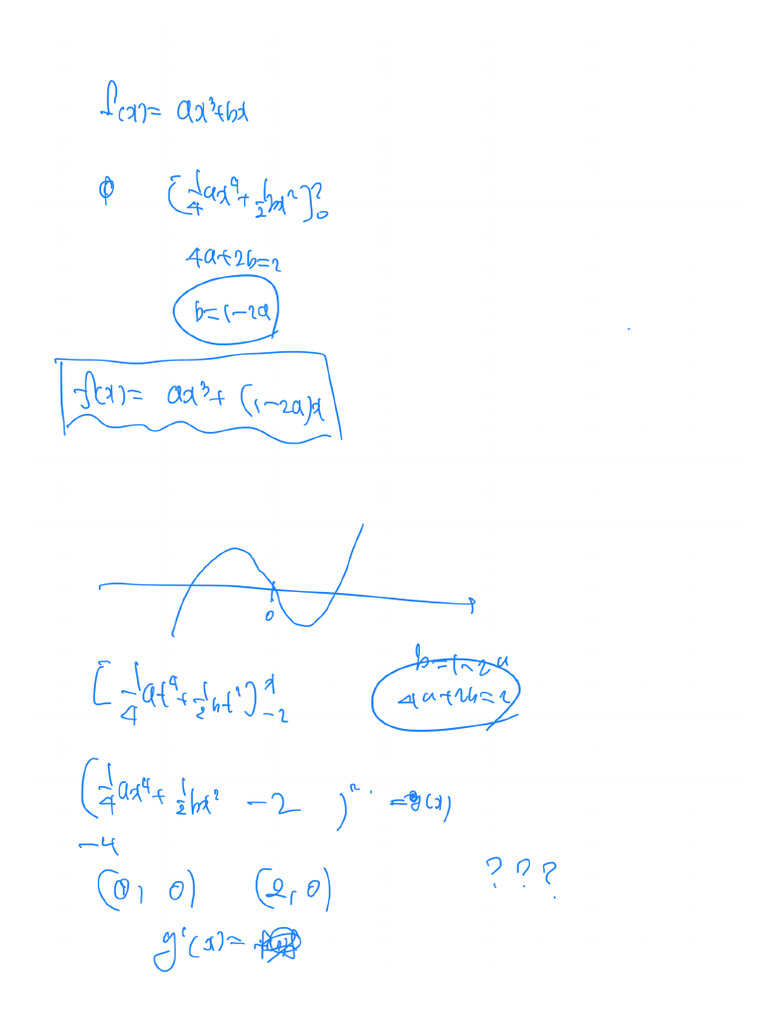 f(x)= ax³+bx
① [1/4 ax⁴+ 1/2 bx²]²₀
4a+2b=2
b=1-2a
f(x)= ax³+(1-2a)x
0
b=1-2a
[1/4 at⁴+ 1/2 bt²]ˣ₋₂
4a+2b=2
(1/4 ax⁴+ 1/2 bx² -2 )². =g(x)
-4
(0, 0) (2, 0) ? ? ?
g'(x)=